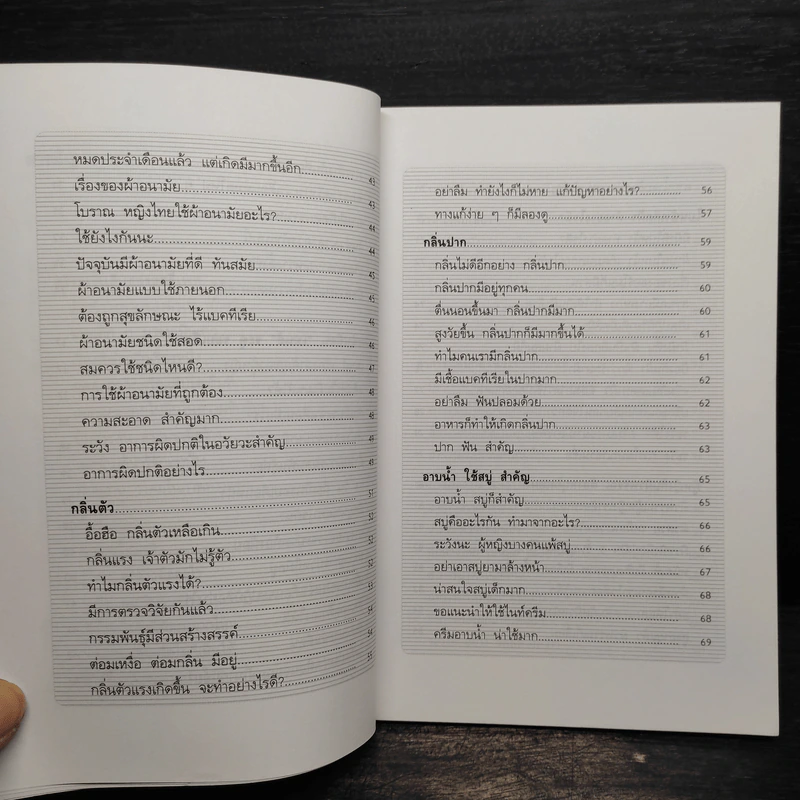 หมดประจำเดือนแล้ว แต่เกิดมีมากขึ้นอีก 42
เรื่องของผ้าอนามัย 43
โบราณ หญิงไทยใช้ผ้าอนามัยอะไร? 44
ใช้ยังไงกันนะ 44
ปัจจุบันมีผ้าอนามัยที่ดี ทันสมัย 45
ผ้าอนามัยแบบใช้ภายนอก 45
ต้องถูกสุขลักษณะ ไร้แบคทีเรีย 46
ผ้าอนามัยชนิดใช้สอด 46
สมควรใช้ชนิดไหนดี? 47
การใช้ผ้าอนามัยที่ถูกต้อง 48
ความสะอาด สำคัญมาก 48
ระวัง อาการผิดปกติในอวัยวะสำคัญ 49
อาการผิดปกติอย่างไร 49
กลิ่นตัว 51
อื้อฮือ กลิ่นตัวเหลือเกิน 52
กลิ่นแรง เจ้าตัวมักไม่รู้ตัว 52
ทำไมกลิ่นตัวแรงได้? 52
มีการตรวจวิจัยกันแล้ว 53
กรรมพันธุ์มีส่วนสร้างสรรค์ 54
ต่อมเหงื่อ ต่อมกลิ่น มีอยู่ 54
กลิ่นตัวแรงเกิดขึ้น จะทำอย่างไรดี? 55
อย่าลืม ทำยังไงก็ไม่หาย แก้ปัญหาอย่างไร? 56
ทางแก้ง่าย ๆ ก็มีลองดู 57
กลิ่นปาก 59
กลิ่นไม่ดีอีกอย่าง กลิ่นปาก 59
กลิ่นปากมีอยู่ทุกคน 60
ตื่นนอนขึ้นมา กลิ่นปากมีมาก 60
สูงวัยขึ้น กลิ่นปากก็มีมากขึ้นได้ 61
ทำไมคนเรามีกลิ่นปาก 61
มีเชื้อแบคทีเรียในปากมาก 62
อย่าลืม ฟันปลอมด้วย 62
อาหารก็ทำให้เกิดกลิ่นปาก 63
ปาก ฟัน สำคัญ 63
อาบน้ำ ใช้สบู่ สำคัญ 65
อาบน้ำ สบู่ก็สำคัญ 65
สบู่คืออะไรกัน ทำมาจากอะไร? 66
ระวังนะ ผู้หญิงบางคนแพ้สบู่ 66
อย่าเอาสบู่ยามาล้างหน้า 67
น่าสนใจสบู่เด็กมาก 68
ขอแนะนำให้ใช้ไนท์ครีม 68
ครีมอาบน้ำ น่าใช้มาก 69